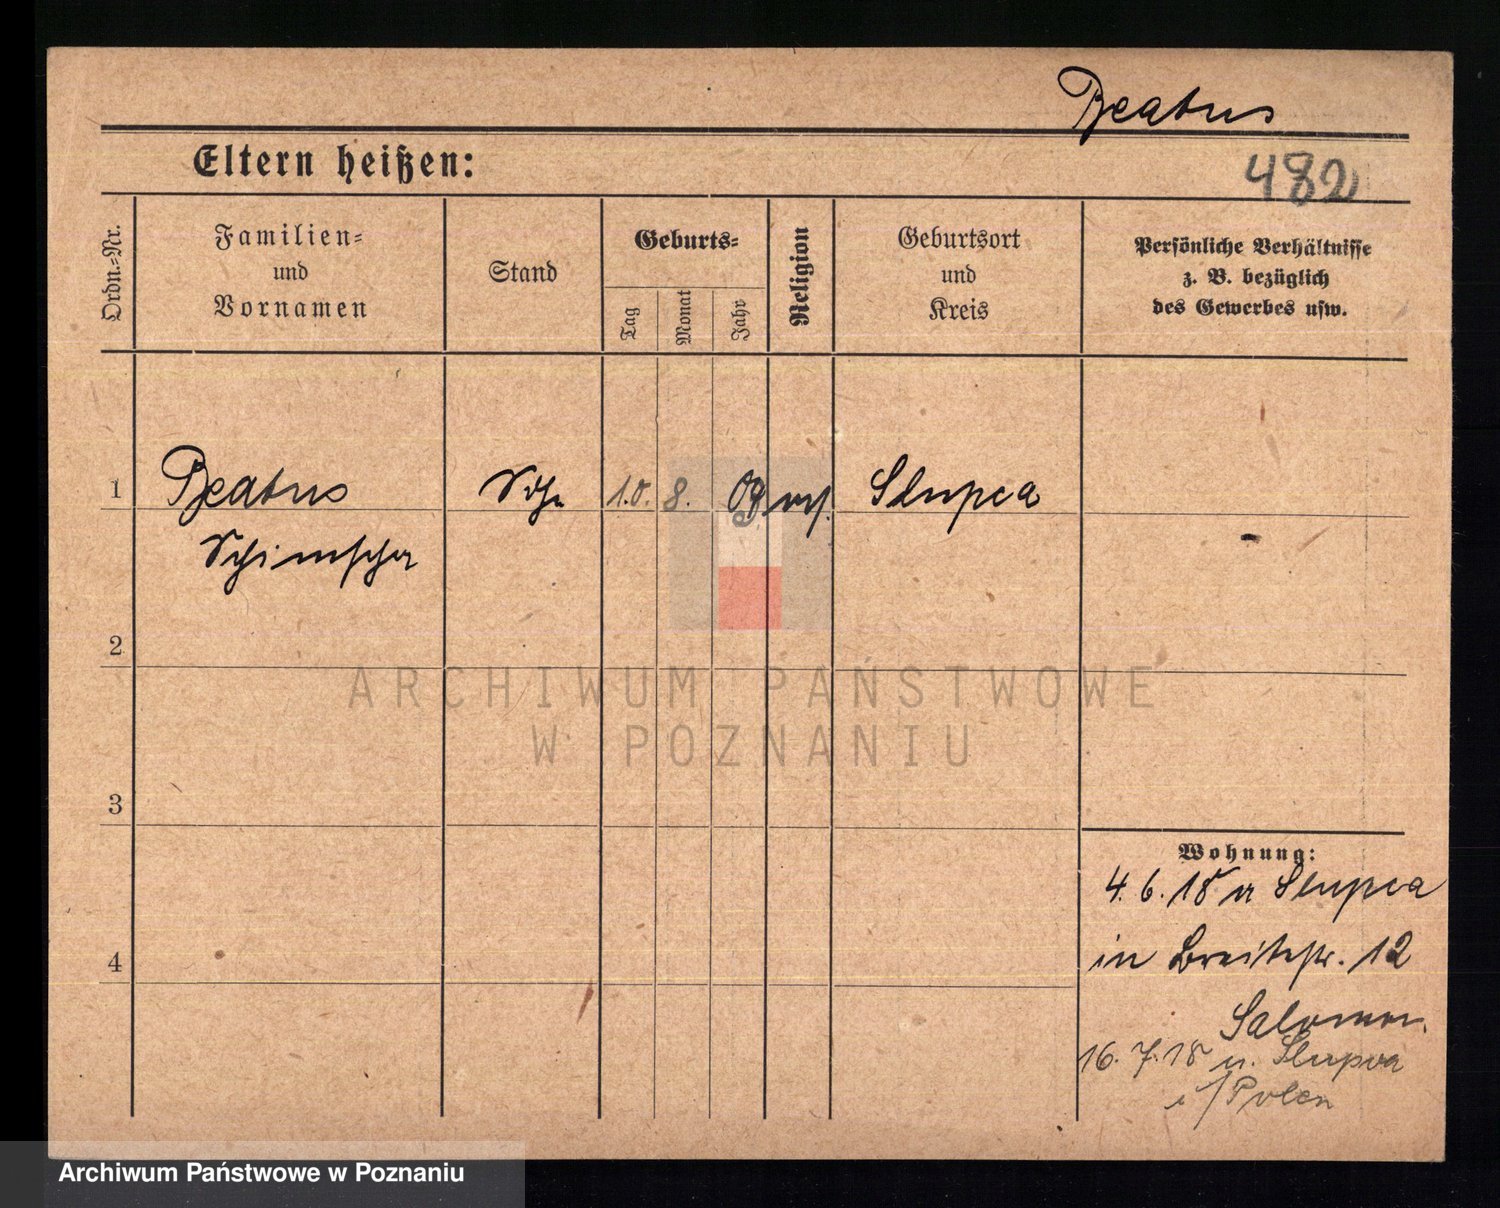 Beatus
Eltern heißen:
482
Ordn.-Nr.
Familien-
und
Vornamen
Stand
Geburts-
Tag
Monat
Jahr
Religion
Geburtsort
und
Kreis
Persönliche Verhältnisse
z. B. bezüglich
des Gewerbes usw.
1 Beatus 10. 8. Slupca
Schimscha
2
ARCHIWUM PAŃSTWOWE
W POZNANIU
3
Wohnung:
4. 6. 18 Slupca
4
in Breitestr. 12
Salomon.
16. 7. 18 n. Slupca
i/Polen
Archiwum Państwowe w Poznaniu